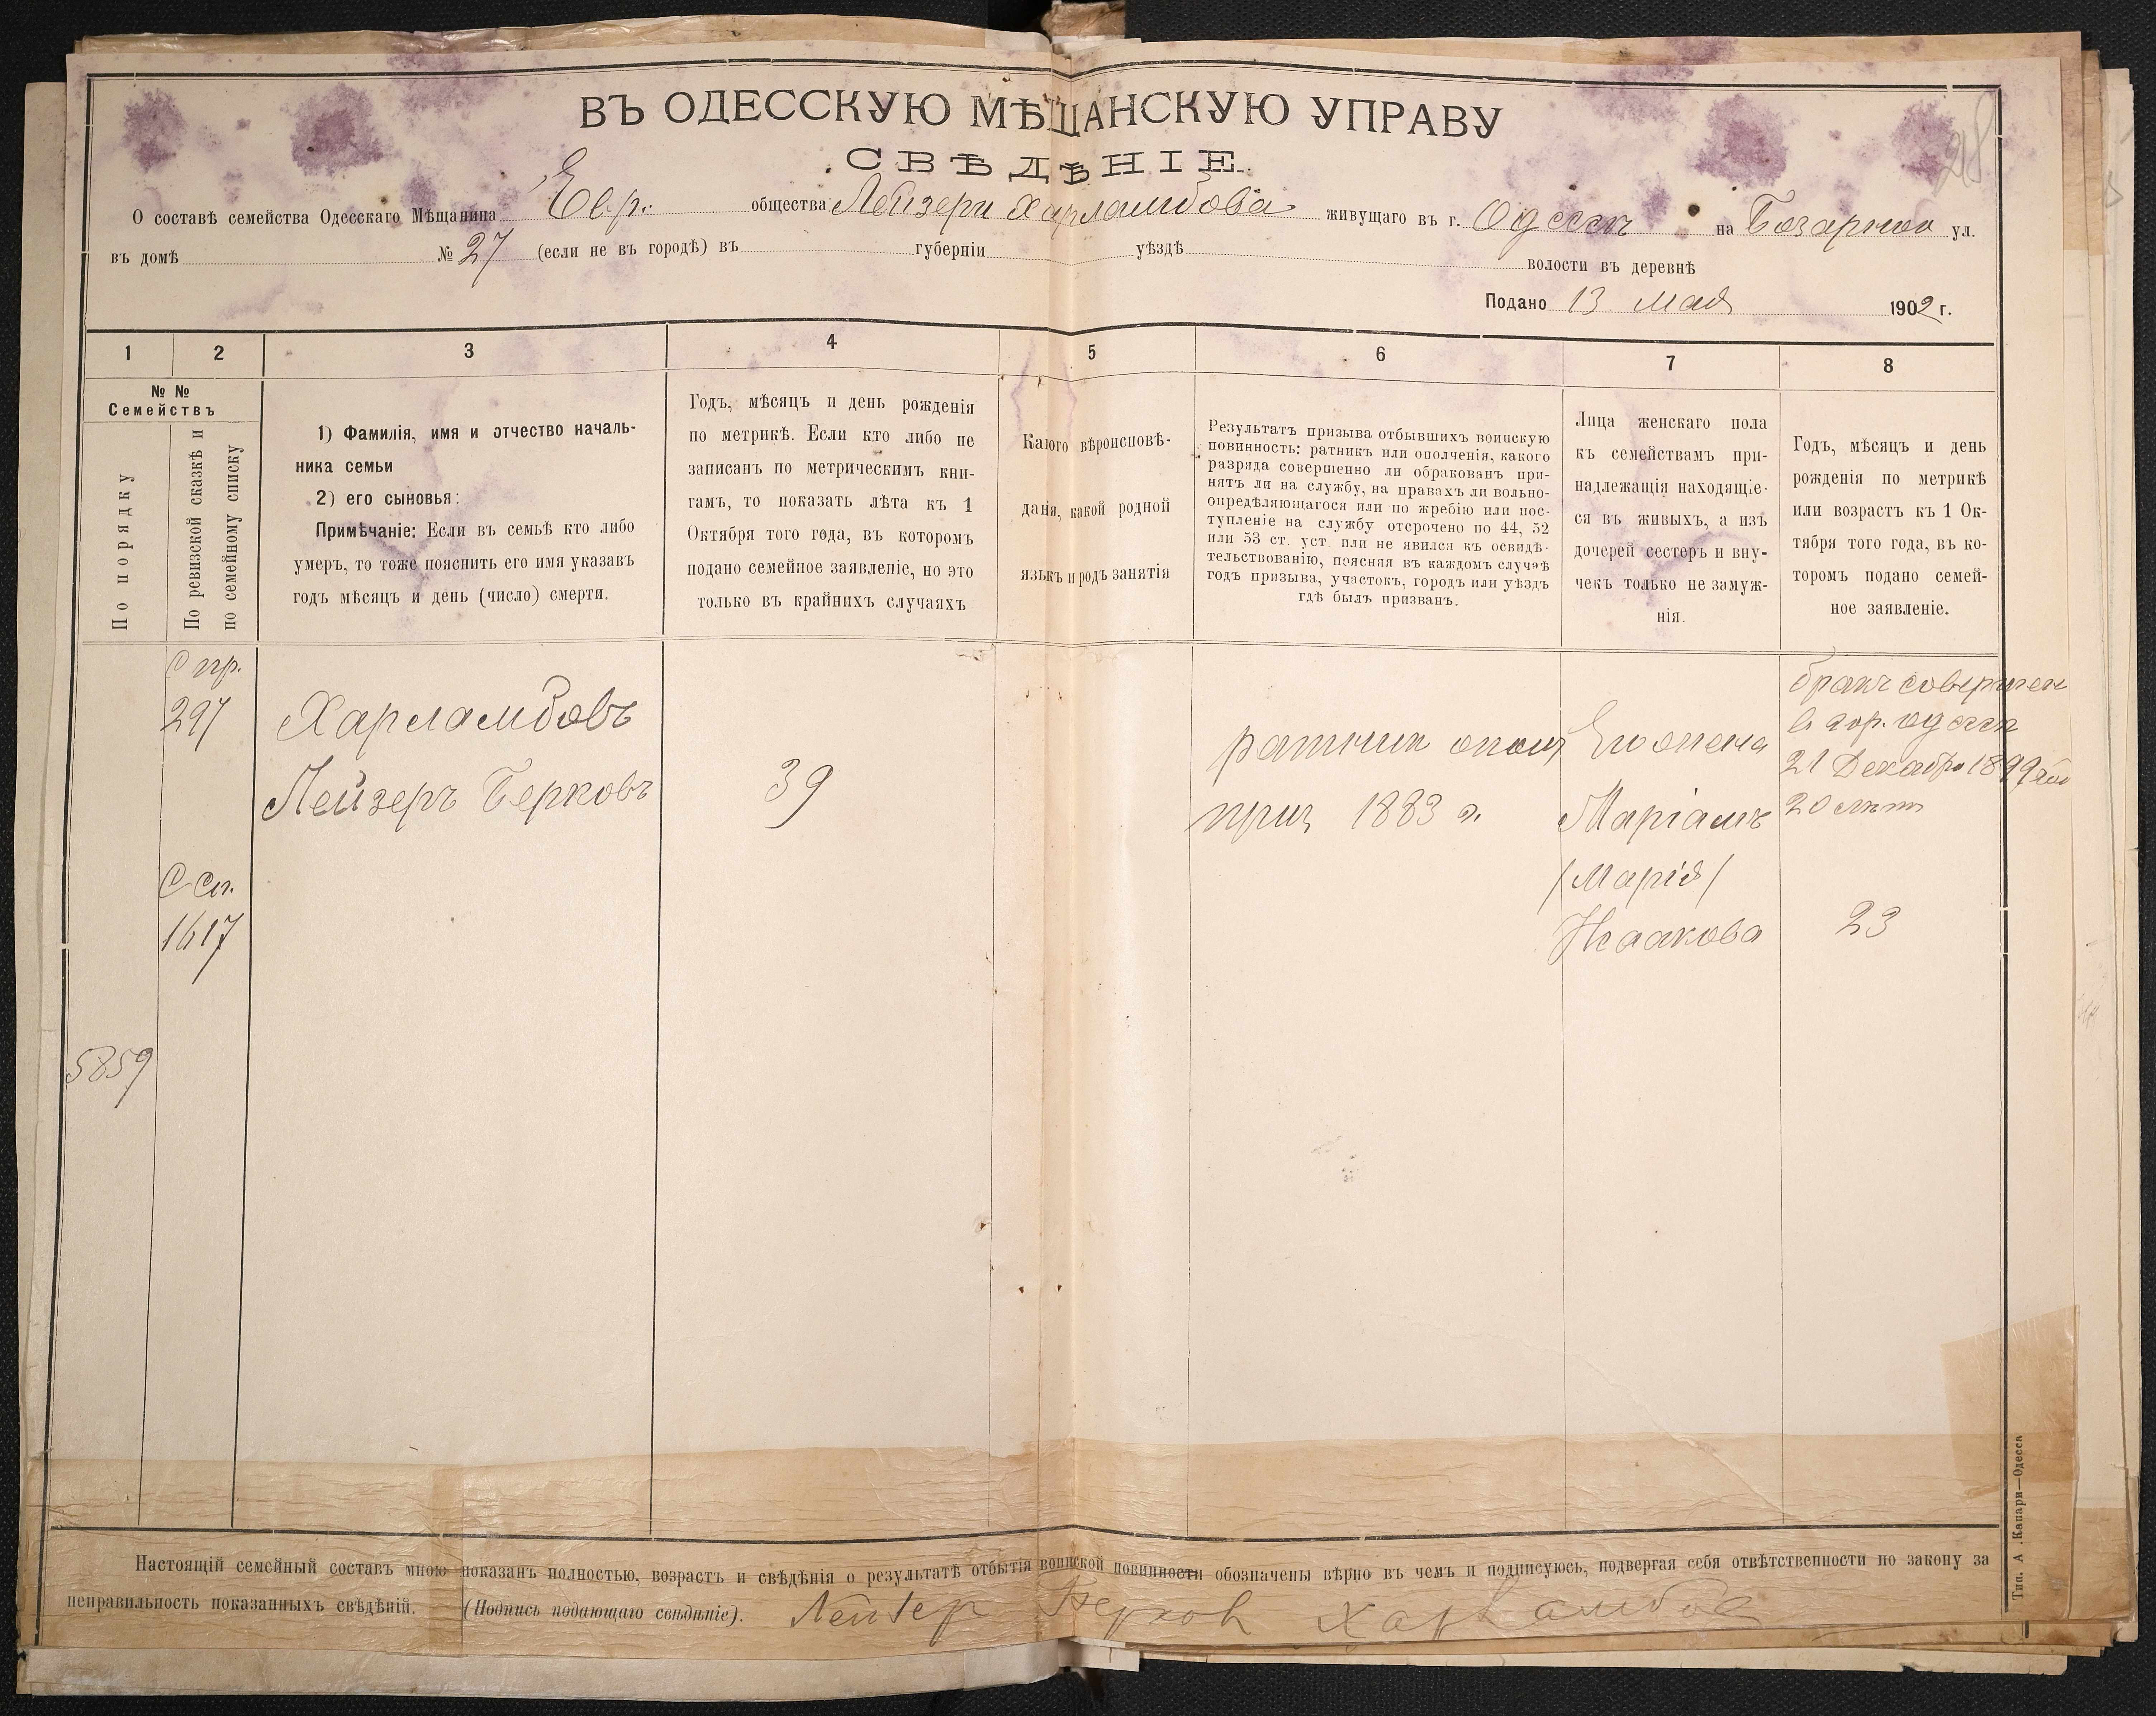 28
ВЪ ОДЕССКУЮ МѢЩАНСКУЮ УПРАВУ
СВѢДѢНІЕ.
О составѣ семейства Одесскаго Мѣщанина Евр. общества Лейзери Харламбова живущаго въ г. Одессѣ на Базарной ул.
въ домѣ № 27 (если не въ городѣ) въ губерніи уѣздѣ волости въ деревнѣ
Подано 13 Мая 1902 г.
1 2 3 4 5 6 7 8
№ №
Семействъ
По порядку
По ревизской сказкѣ и
по семейному списку
1) Фамилія, имя и отчество началь-
ника семьи
2) его сыновья:
Примѣчаніе: Если въ семьѣ кто либо
умеръ, то тоже пояснить его имя указавъ
годъ мѣсяцъ и день (число) смерти.
Годъ, мѣсяцъ и день рожденія
по метрикѣ. Если кто либо не
записанъ по метрическимъ кни-
гамъ, то показать лѣта къ 1
Октября того года, въ которомъ
подано семейное заявленіе, но это
только въ крайнихъ случаяхъ
Какого вѣроисповѣ-
данія, какой родной
языкъ и родъ занятія
Результатъ призыва отбывшихъ воинскую
повинность: ратникъ или ополченія, какого
разряда совершенно ли обракованъ при-
нятъ ли на службу, на правахъ ли вольно-
опредѣляющагося или по жребію или пос-
тупленіе на службу отсрочено по 44, 52
или 53 ст. уст. или не явился къ освидѣ-
тельствованію, поясняя въ каждомъ случаѣ
годъ призыва, участокъ, городъ или уѣздъ
гдѣ былъ призванъ.
Лица женскаго пола
къ семействамъ при-
надлежащія находящіе-
ся въ живыхъ, а изъ
дочерей сестеръ и вну-
чекъ только не замуж-
нія.
Годъ, мѣсяцъ и день
рожденія по метрикѣ
или возрастъ къ 1 Ок-
тября того года, въ ко-
торомъ подано семей-
ное заявленіе.
С пр.
297
С Сп.
1617
5859
Харламбовъ
Лейзеръ Берковъ
39
ратник опол
приз 1883 г.
Его жена
Маріамъ
/Марія/
Исаакова
бракъ совершен
в гор. Одессѣ
21 Декабря 1899
20 лѣтъ
23
Настоящій семейный составъ мною показанъ полностью, возрастъ и свѣдѣнія о результатѣ отбытія воинской повинности обозначены вѣрно въ чемъ и подписуюсь, подвергая себя отвѣтственности по закону за
неправильность показанныхъ свѣдѣній. (Подпись подающаго свѣдѣніе). Лейзер Берков Харламбов
Тип. А. Капари—Одесса